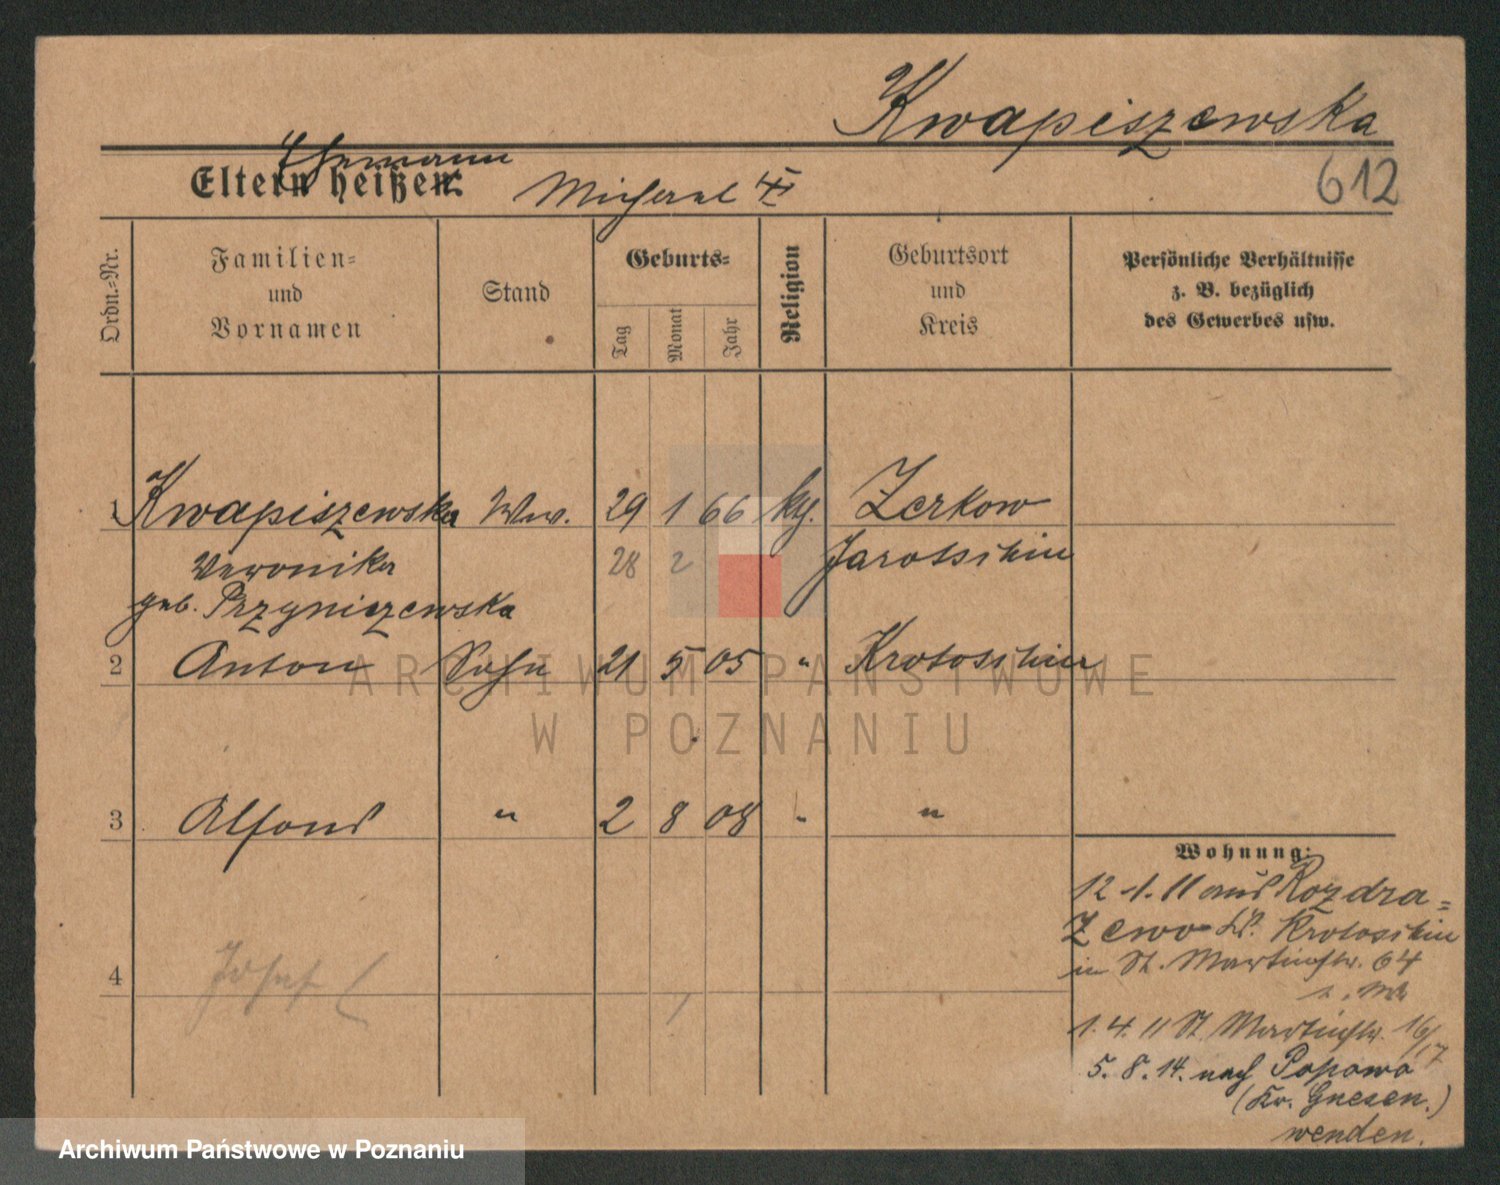 Kwapiszewska
612
Ehemann
Eltern heißen:
Michael
Ordn.-Nr.
Familien-
und
Vornamen
Stand
Geburts-
Tag
Monat
Jahr
Religion
Geburtsort
und
Kreis
Persönliche Verhältnisse
z. B. bezüglich
des Gewerbes usw.
1 Kwapiszewska Ww. 29 1 66 kg. Zerkow
Weronika 28 2 Jarotschin
geb. Przyniczewska
2 Anton Sohn 21 5 05 " Krotoschin
3 Alfons " 2 8 08 " "
4 Josef
Wohnung:
12.1.11 aus Rozdra=
zewo Kr. Krotoschin
in St. Martinstr. 64
1.4.11 St. Martinstr. 16/17
5.8.14. nach Popowo
(Kr. Gnesen.)
wenden.
ARCHIWUM PAŃSTWOWE
W POZNANIU
Archiwum Państwowe w Poznaniu